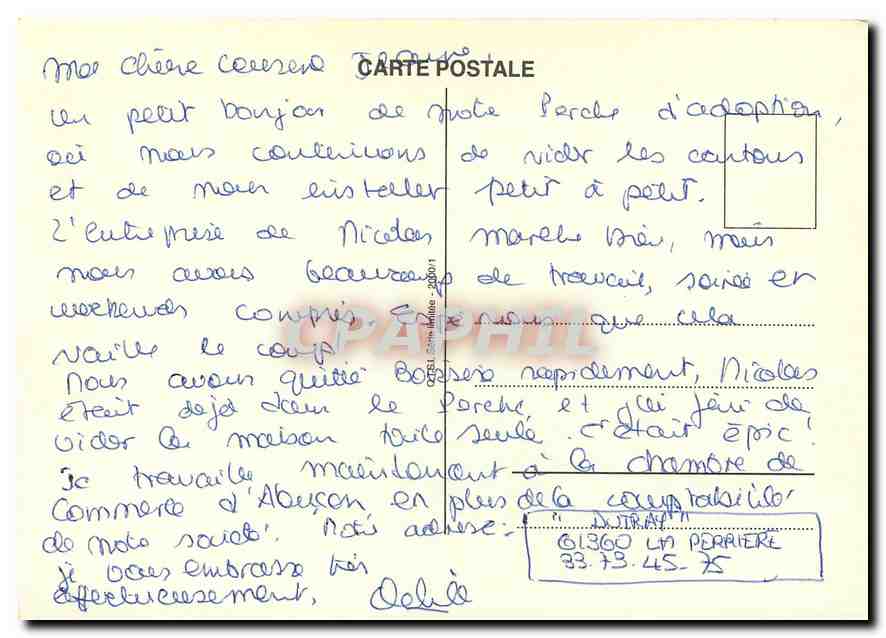 Ma chère cousine
CARTE POSTALE
un petit bonjour de notre Perche d'adoption,
où nous continuons de vider les cartons
et de nous installer petit à petit.
L'entreprise de Nicolas marche bien, mais
nous avons beaucoup de travail, soirée et
weekends compris. nous que cela
vaille le coup!
Nous avons quitté rapidement, Nicolas
était déjà dans le Perche, et j'ai fini de
vider la maison toute seule. c'était épic!
Je travaille maintenant à la chambre de
Commerce d'Alençon, en plus de la comptabilité
de notre société. Notre adresse:
"DUTRAY"
61360 LA PERRIERE
33.73.45-75
je vous embrasse très
affectueusement,
© T.S.I. Série limitée - 2000/1
CPAPHIL